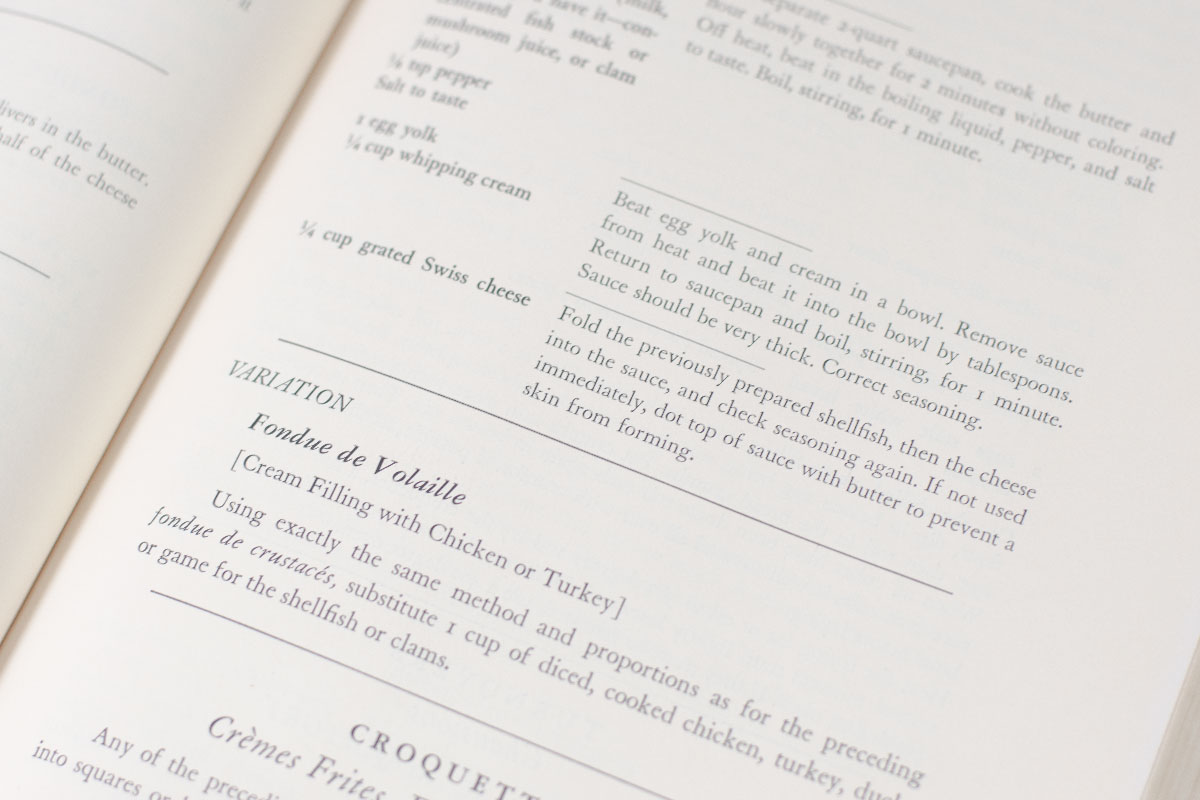 it
livers in the butter.
half of the cheese
(milk,
have it—con-
centrated fish stock or
mushroom juice, or clam
juice)
⅛ tsp pepper
Salt to taste
separate 2-quart saucepan, cook the butter and
flour slowly together for 2 minutes without coloring.
Off heat, beat in the boiling liquid, pepper, and salt
to taste. Boil, stirring, for 1 minute.
1 egg yolk
¼ cup whipping cream
Beat egg yolk and cream in a bowl. Remove sauce
from heat and beat it into the bowl by tablespoons.
Return to saucepan and boil, stirring, for 1 minute.
Sauce should be very thick. Correct seasoning.
¼ cup grated Swiss cheese
Fold the previously prepared shellfish, then the cheese
into the sauce, and check seasoning again. If not used
immediately, dot top of sauce with butter to prevent a
skin from forming.
VARIATION
Fondue de Volaille
[Cream Filling with Chicken or Turkey]
Using exactly the same method and proportions as for the preceding
fondue de crustacés, substitute 1 cup of diced, cooked chicken, turkey, duck
or game for the shellfish or clams.
CROQUETT
Crèmes Frites
Any of the precedi
into squares or